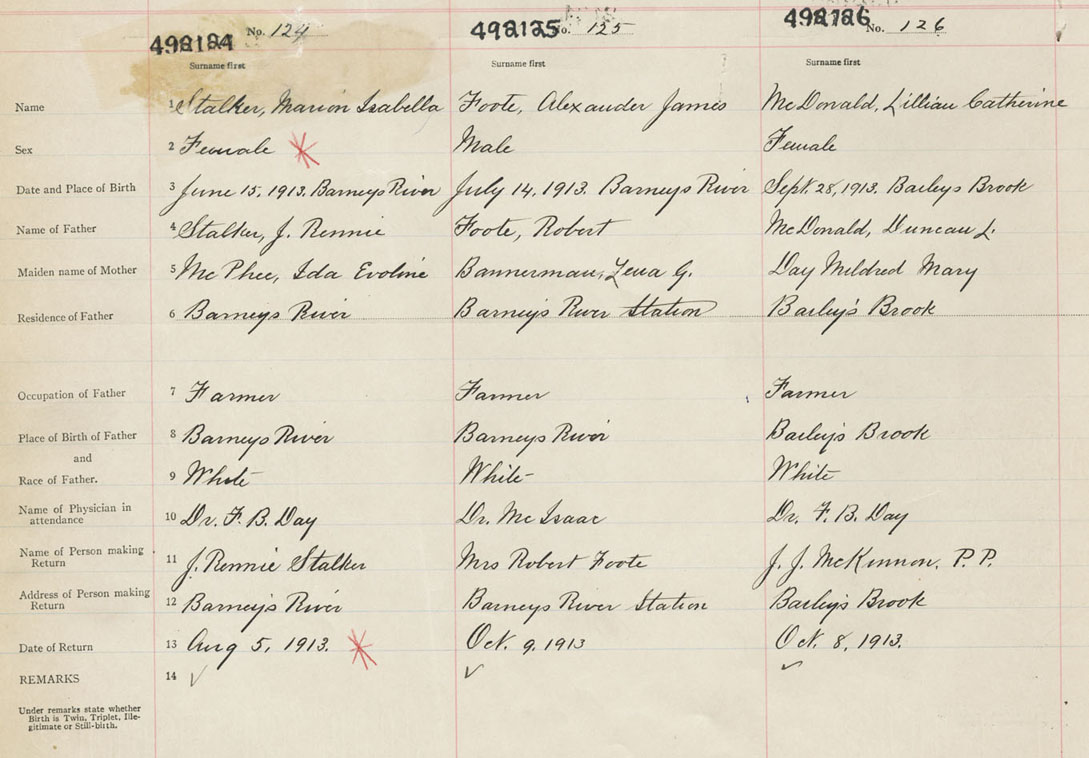 No. 124 No. 125 No. 126
498184 498125 498126
Surname first Surname first Surname first
Name 1 Stalker, Marion Isabella Foote, Alexander James McDonald, Lillian Catherine
Sex 2 Female Male Female
Date and Place of Birth 3 June 15, 1913. Barneys River July 14, 1913. Barneys River Sept. 28, 1913. Baileys Brook
Name of Father 4 Stalker, J. Rennie Foote, Robert McDonald, Duncan J.
Maiden name of Mother 5 McPhee, Ida Evoline Bannerman, Lena G. Day Mildred Mary
Residence of Father 6 Barneys River Barney's River Station Bailey's Brook
Occupation of Father 7 Farmer Farmer Farmer
Place of Birth of Father 8 Barneys River Barneys River Bailey's Brook
and
Race of Father. 9 White White White
Name of Physician in
attendance 10 Dr. F. B. Day Dr. Mc Isaac Dr. F. B. Day
Name of Person making
Return 11 J. Rennie Stalker Mrs Robert Foote J. J. McKinnon. P. P.
Address of Person making
Return 12 Barney's River Barneys River Station Bailey's Brook
Date of Return 13 Aug 5, 1913. Oct. 9, 1913 Oct. 8, 1913.
REMARKS 14
Under remarks state whether
Birth is Twin, Triplet, Ille-
gitimate or Still-birth.